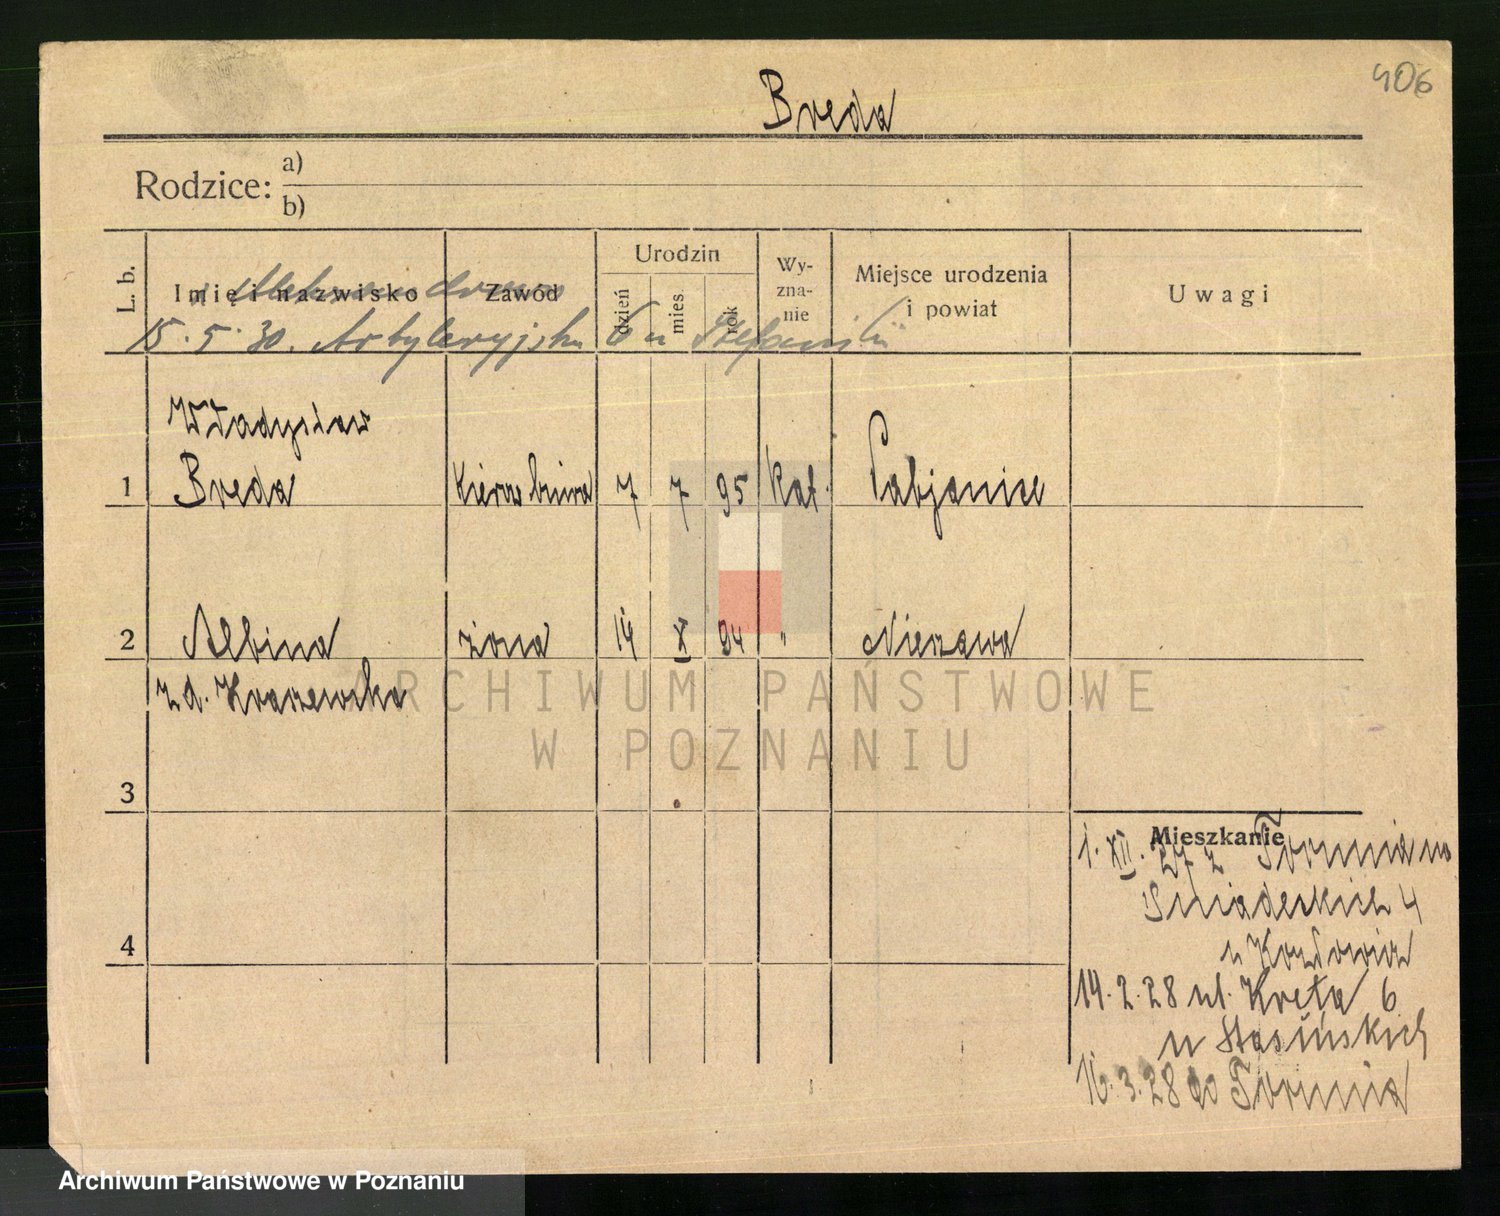 406
Breda
Rodzice: a)
b)
L. b.
Imię i nazwisko
Zawód
Urodzin
dzień
mies.
rok
Wy-
zna-
nie
Miejsce urodzenia
i powiat
Uwagi
15.5.30. Artyleryjska 6 u
Władysław
1 Breda Kierow biura 7 7 95 Kat. Pabjanice
2 Albina żona 14 X 94 " Nieszawa
z d. Kraszewska
3
Mieszkanie
1. XII. 27 z Torunia na
Śniadeckich 4
u
4
14.2.28 ul. Kręta 6
u Stasińskich
16.3.28 do Torunia
ARCHIWUM PAŃSTWOWE
W POZNANIU
Archiwum Państwowe w Poznaniu